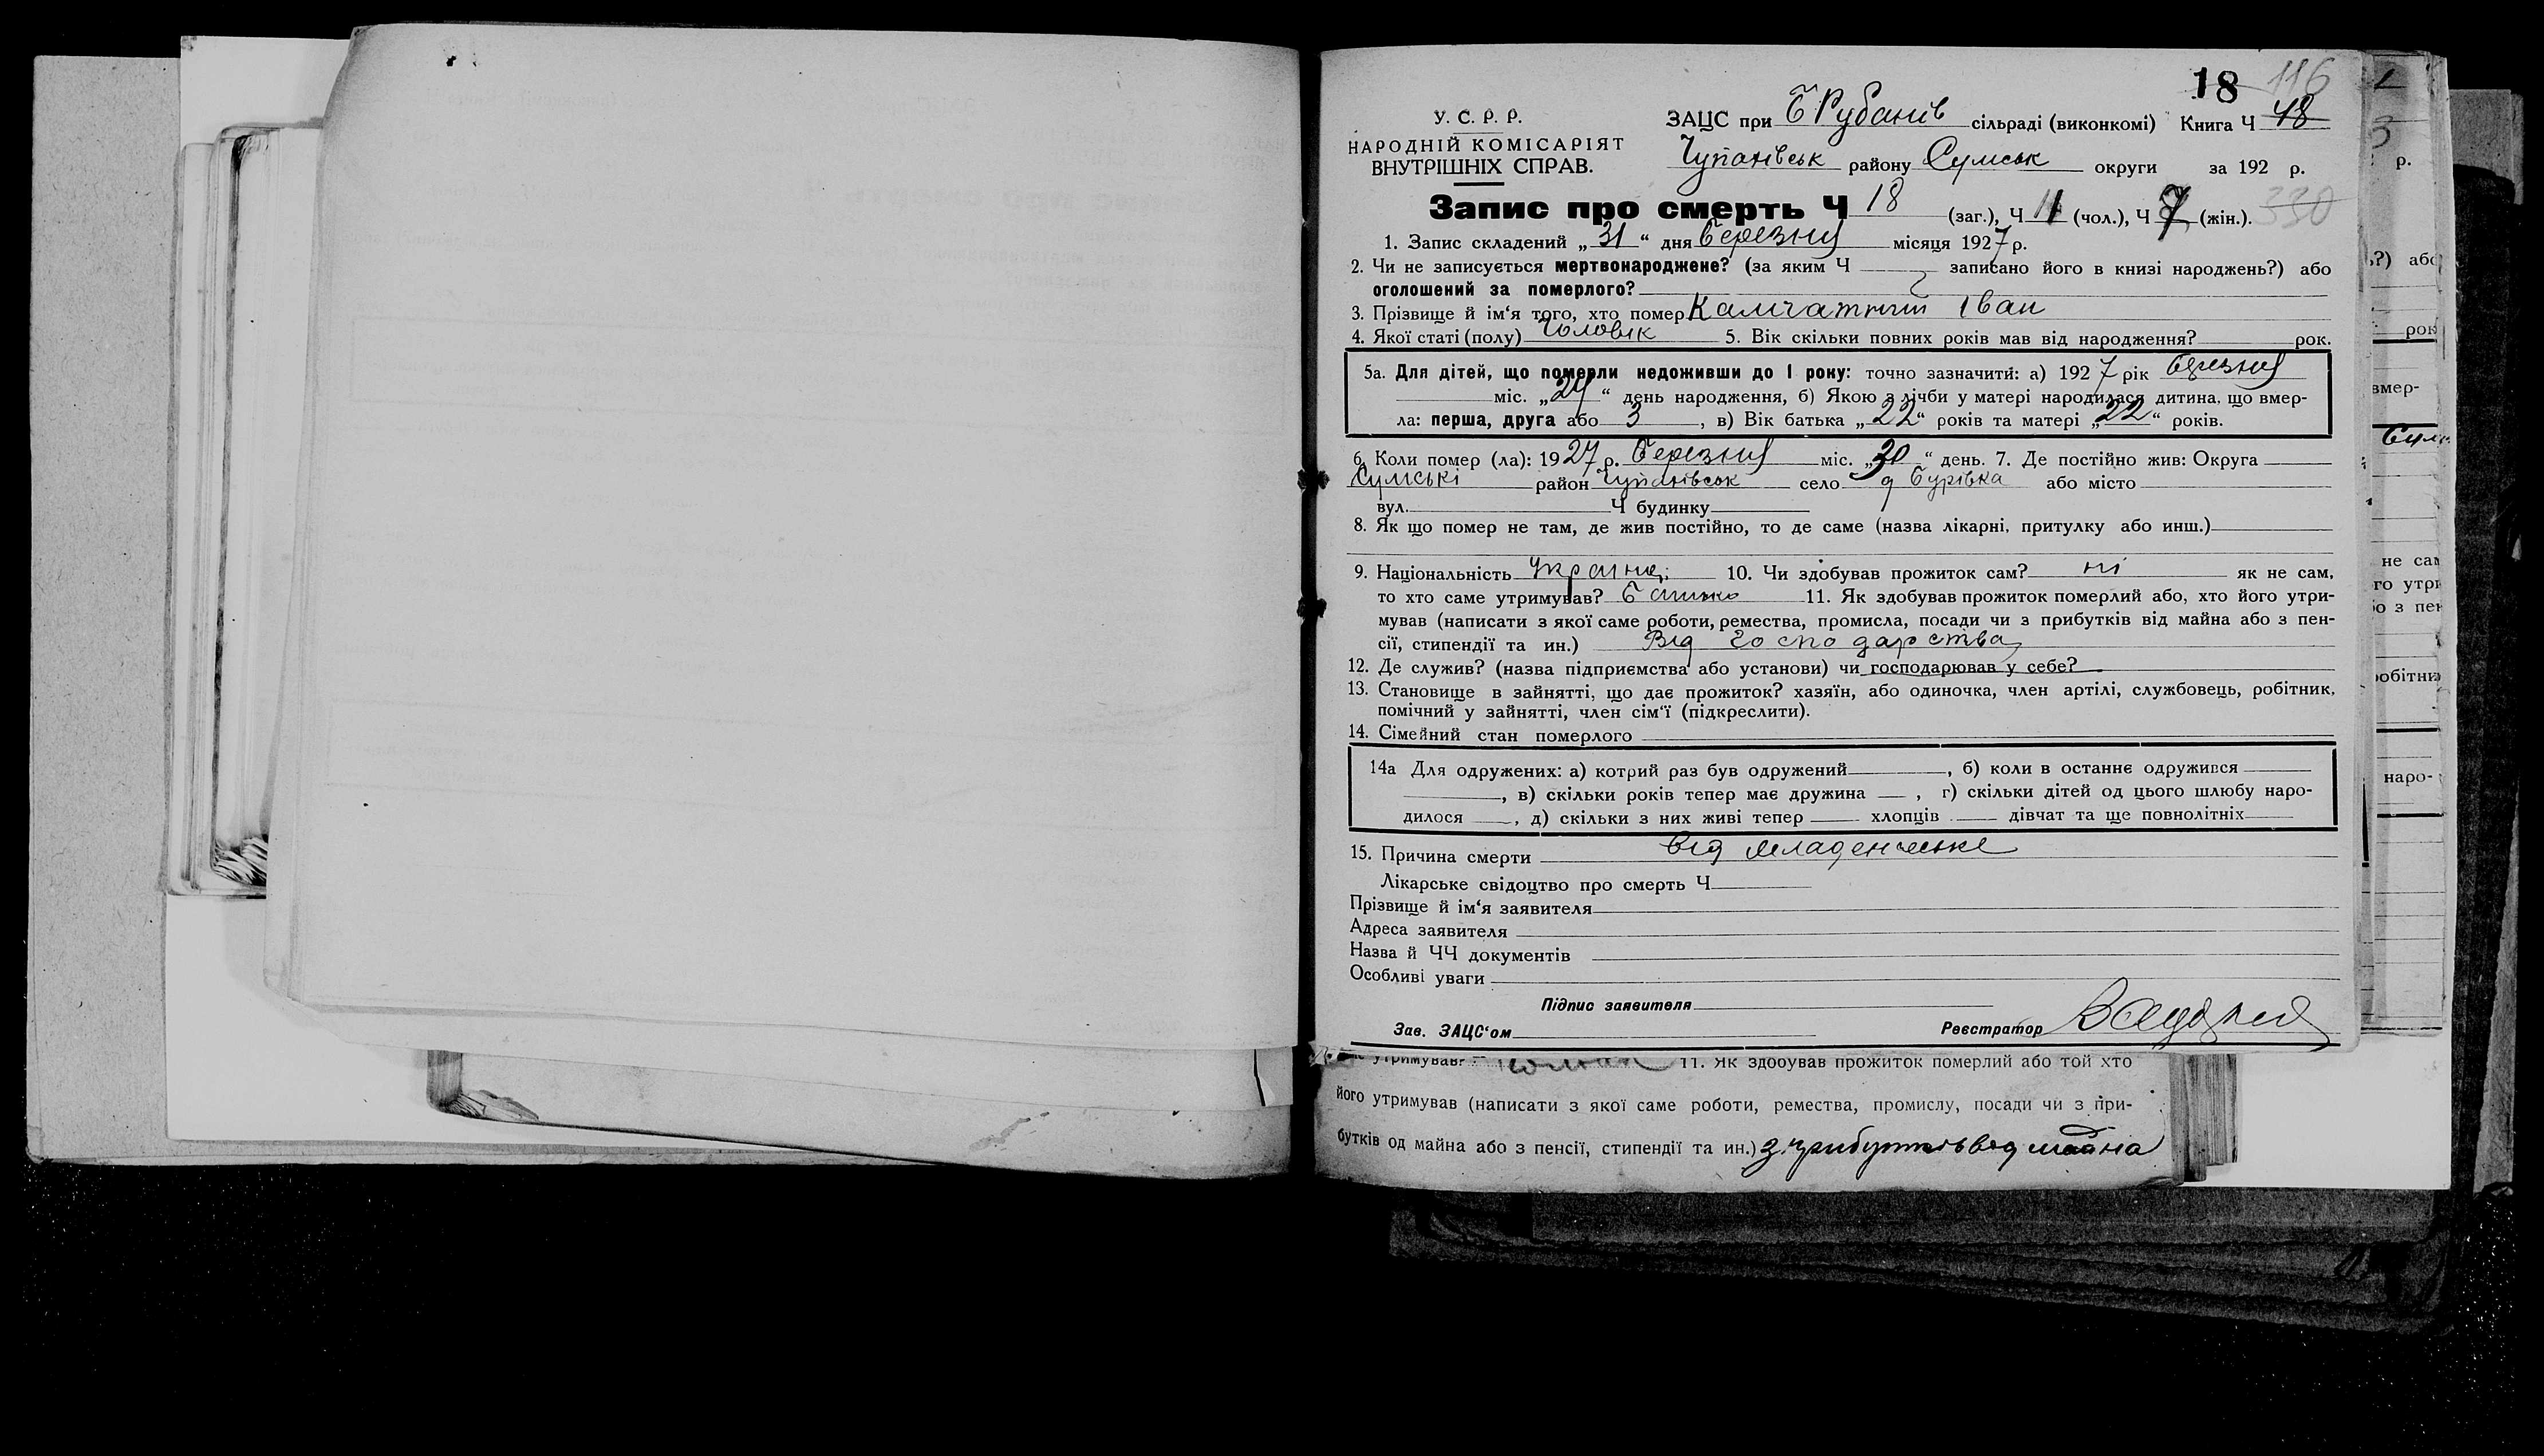 18 116
У. С. Р. Р.
НАРОДНІЙ КОМІСАРІЯТ
ВНУТРІШНІХ СПРАВ.
ЗАЦС при Б Рубанів сільраді (виконкомі) Книга Ч 48
Чупахівськ району Сумськ округи за 192 р.
Запис про смерть Ч 18 (заг.), Ч 11 (чол.), Ч 7 (жін.). 330
1. Запис складений „31“ дня березня місяця 1927 р.
2. Чи не записується мертвонароджене? (за яким Ч записано його в книзі народжень?) або
оголошений за померлого?
3. Прізвище й ім‘я того, хто помер Камчатний Іван
4. Якої статі (полу) чоловік 5. Вік скільки повних років мав від народження? рок.
5а. Для дітей, що померли недоживши до 1 року: точно зазначити: а) 1927 рік березня
міс. „24“ день народження, б) Якою з лічби у матері народилася дитина, що вмер-
ла: перша, друга або 3, в) Вік батька „22“ років та матері „22“ років.
6. Коли помер (ла): 1927 р. березня міс. „30“ день. 7. Де постійно жив: Округа
Сумські район Чупахівськ село д Бурівка або місто
вул. Ч будинку
8. Як що помер не там, де жив постійно, то де саме (назва лікарні, притулку або инш.)
9. Національність Україна. 10. Чи здобував прожиток сам? ні як не сам,
то хто саме утримував? Батько 11. Як здобував прожиток померлий або, хто його утри-
мував (написати з якої саме роботи, ремества, промисла, посади чи з прибутків від майна або з пен-
сії, стипендії та ин.) Від господарства
12. Де служив? (назва підприємства або установи) чи господарював у себе?
13. Становище в зайнятті, що дає прожиток? хазяїн, або одиночка, член артілі, службовець, робітник,
помічний у зайнятті, член сім‘ї (підкреслити).
14. Сімейний стан померлого
14а Для одружених: а) котрий раз був одружений, б) коли в останнє одружився
, в) скільки років тепер має дружина , г) скільки дітей од цього шлюбу наро-
дилося , д) скільки з них живі тепер хлопців дівчат та ще повнолітніх
15. Причина смерти від младенческе
Лікарське свідоцтво про смерть Ч
Прізвище й ім‘я заявителя
Адреса заявителя
Назва й ЧЧ документів
Особливі уваги
Підпис заявителя
Зав. ЗАЦС‘ом Реєстратор
утримував? 11. Як здобував прожиток померлий або той хто
його утримував (написати з якої саме роботи, ремества, промислу, посади чи з при-
бутків од майна або з пенсії, стипендії та ин.) з прибутків від майна